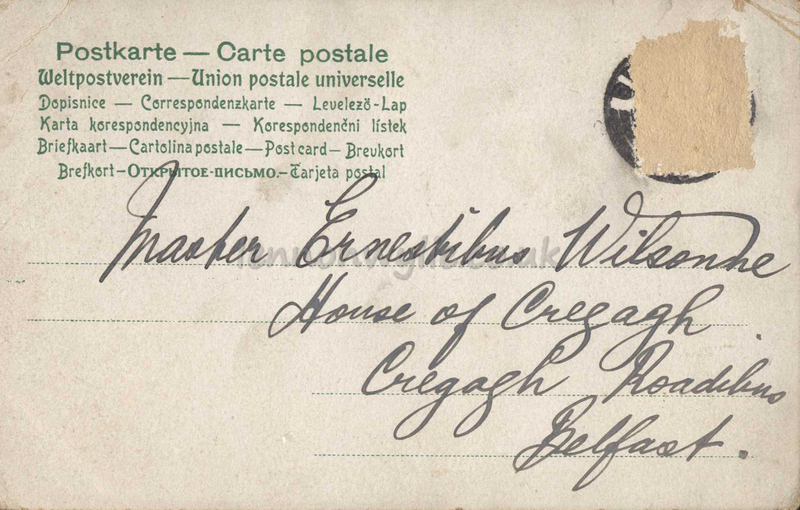 Postkarte — Carte postale
Weltpostverein — Union postale universelle
Dopisnice — Correspondenzkarte — Levelező-Lap
Karta korespondencyjna — Korespondenční lístek
Briefkaart — Cartolina postale — Post card — Brevkort
Brefkort — Открытое-письмо. — Tarjeta postal
Master Ernestibus Wilsonne
House of Cregagh
Cregagh Roadibus
Belfast.